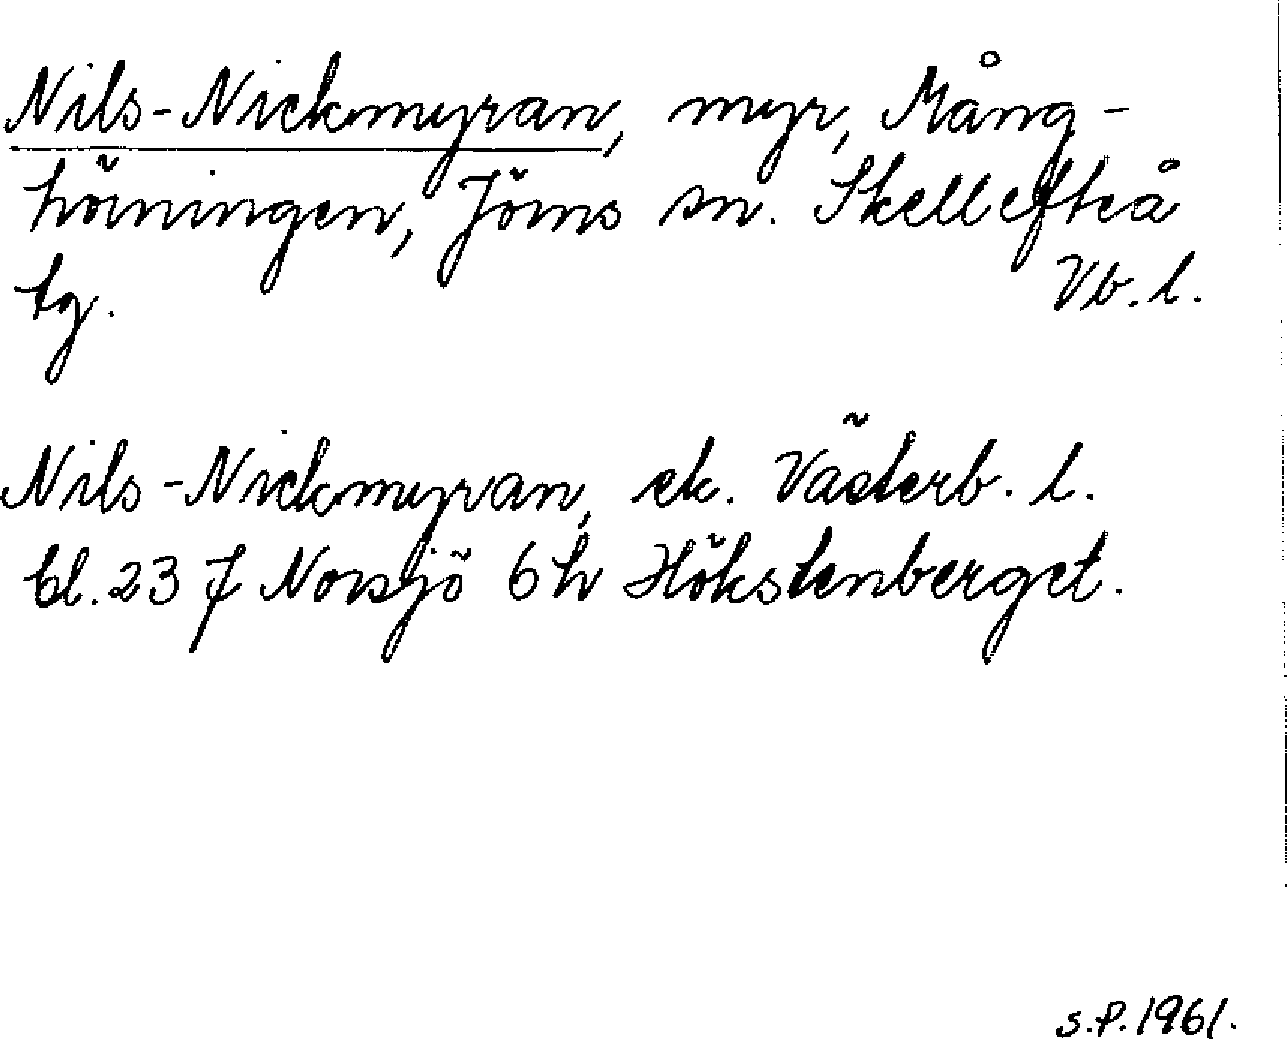 Nils-Nickmyran, myr, Mång-
hörningen, Jörns sn. Skellefteå
tg. Vb. l.
Nils-Nickmyran, ek. Västerb. l.
bl. 23 J Norsjö 6 h Hökstenberget.
S.P. 1961.